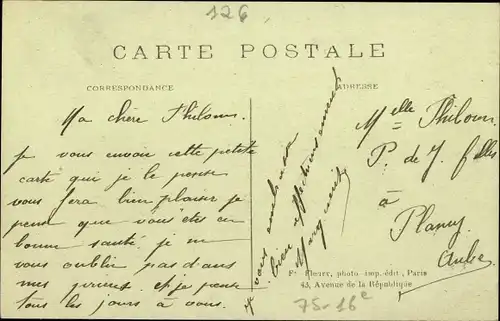 126
CARTE POSTALE
CORRESPONDANCE
ADRESSE
Ma chère Philom.
Je vous envoie cette petite
carte qui je le pense
vous fera bien plaisir je
pense que vous êtes en
bonne santé je ne
vous oublie pas dans
mes prières et je pense
tous les jours à vous.
je vous embrasse
bien affectueusement
Marguerite
Melle Philom.
P. de J. filles
à
Plancy
Aube
F. Fleury, photo imp. édit., Paris
43, Avenue de la République
75-16e